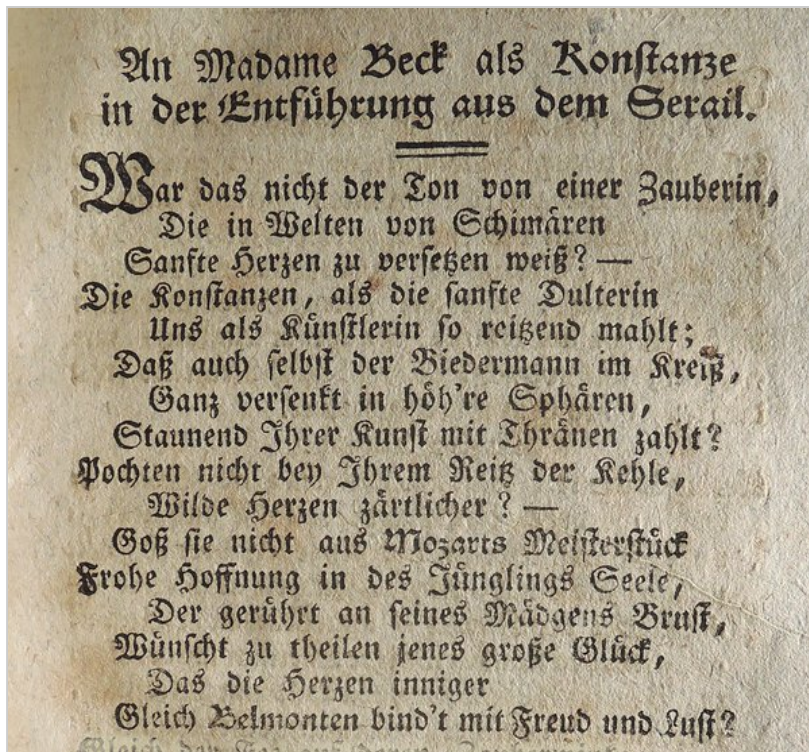 An Madame Beck als Konstanze
in der Entführung aus dem Serail.
War das nicht der Ton von einer Zauberin,
Die in Welten von Schimären
Sanfte Herzen zu versetzen weiß? —
Die Konstanzen, als die sanfte Dulterin
Uns als Künstlerin so reitzend mahlt;
Daß auch selbst der Biedermann im Kreiß,
Ganz versenkt in höh're Sphären,
Staunend Ihrer Kunst mit Thränen zahlt?
Pochten nicht bey Ihrem Reitz der Kehle,
Wilde Herzen zärtlicher? —
Goß sie nicht aus Mozarts Meisterstück
Frohe Hoffnung in des Jünglings Seele,
Der gerührt an seines Mädgens Brust,
Wünscht zu theilen jenes große Glück,
Das die Herzen inniger
Gleich Belmonten bind't mit Freud und Lust?